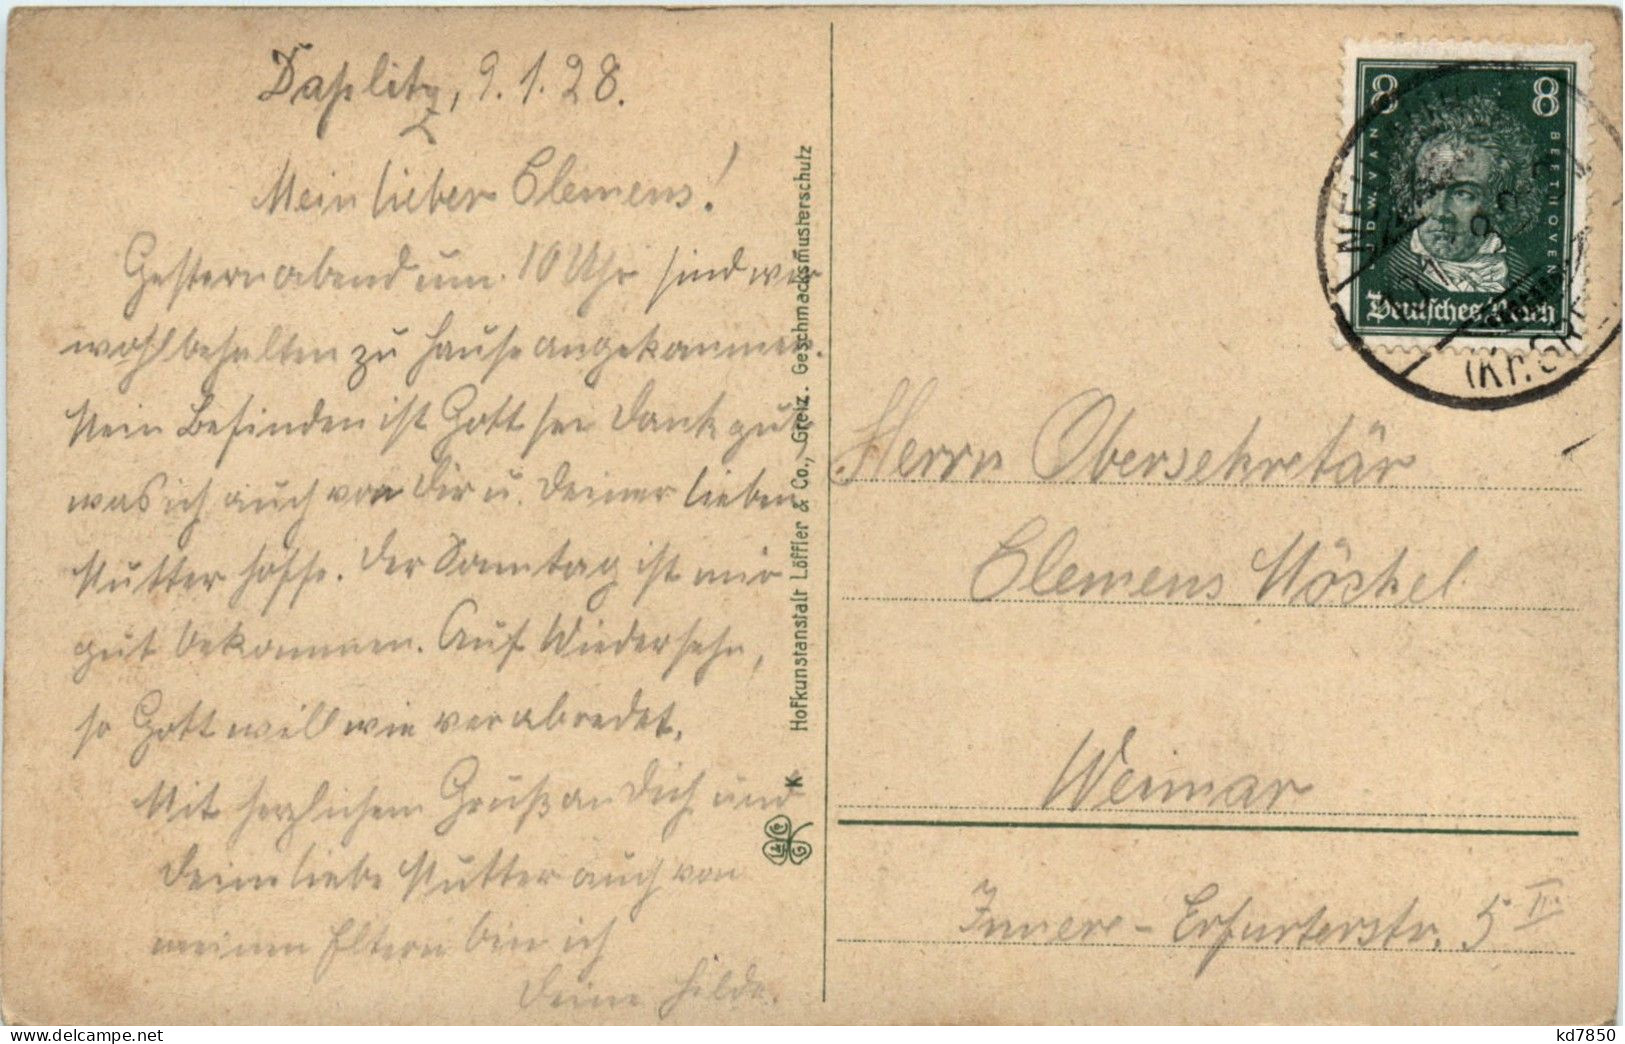 Daßlitz, 9.1.28.
Mein lieber Clemens!
Gestern abend um 10 Uhr sind wir
wohlbehalten zu Hause angekommen.
Mein Befinden ist Gott sei Dank gut
was ich auch von Dir u. Deiner lieben
Mutter hoffe. Der Sonntag ist mir
gut bekommen. Auf Wiedersehn,
so Gott will wie verabredet.
Mit herzlichem Gruß an Dich und
Deine liebe Mutter auch von
meinen Eltern bin ich
Deine Hilde.
K Hofkunstanstalt Löffler & Co., Greiz. Geschmacksmusterschutz
8 8
LUDW. VAN BEETHOVEN
Deutsches Reich
(Kr. Gr
Herrn Obersekretär
Clemens Möckel
Weimar
Innere-Erfurterstr. 5 II.
kd7850